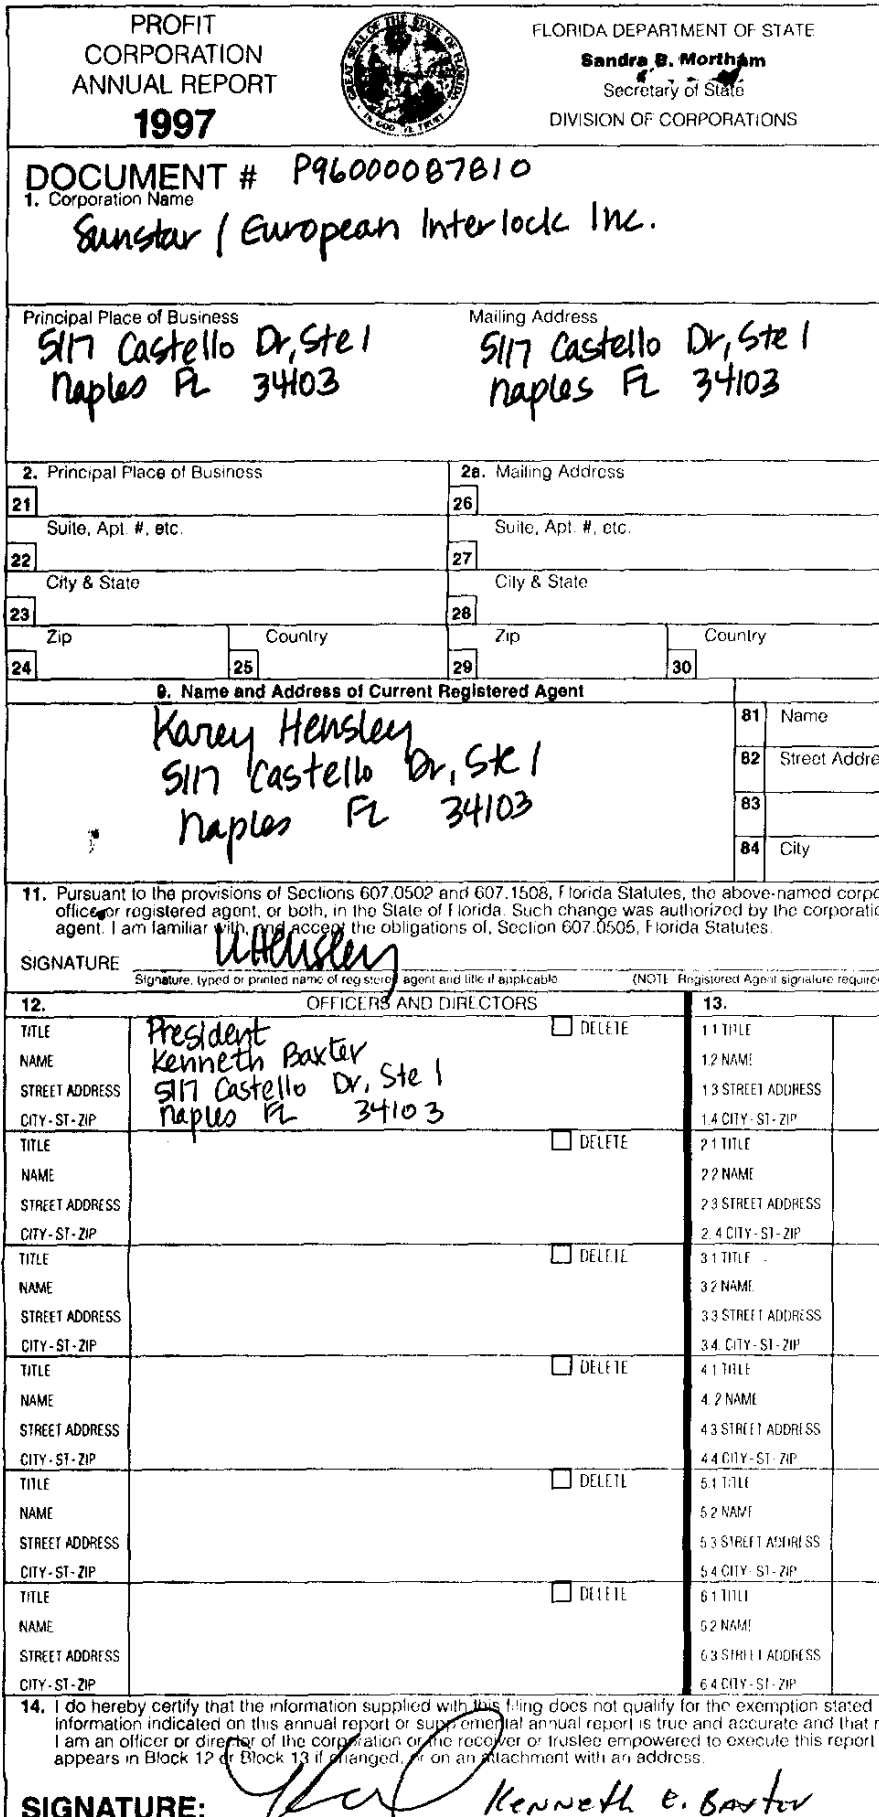 PROFIT
CORPORATION
ANNUAL REPORT
1997
GREAT SEAL OF THE STATE OF FLORIDA
IN GOD WE TRUST
FLORIDA DEPARTMENT OF STATE
Sandra B. Mortham
Secretary of State
DIVISION OF CORPORATIONS
DOCUMENT # P96000087810
1. Corporation Name
Sunstar / European Interlock Inc.
Principal Place of Business
5117 Castello Dr, Ste 1
Naples FL 34103
Mailing Address
5117 Castello Dr, Ste 1
Naples FL 34103
2. Principal Place of Business
21
Suite, Apt. #, etc.
22
City & State
23
Zip
24
Country
25
2a. Mailing Address
26
Suite, Apt. #, etc.
27
City & State
28
Zip
29
Country
30
9. Name and Address of Current Registered Agent
Karey Hensley
5117 Castello Dr, Ste 1
Naples FL 34103
81 Name
82 Street Addre
83
84 City
11. Pursuant to the provisions of Sections 607.0502 and 607.1508, Florida Statutes, the above-named corpo
office or registered agent, or both, in the State of Florida. Such change was authorized by the corporatio
agent. I am familiar with, and accept the obligations of, Section 607.0505, Florida Statutes.
SIGNATURE
Signature, typed or printed name of registered agent and title if applicable
(NOTE Registered Agent signature require
12. OFFICERS AND DIRECTORS
TITLE President DELETE
NAME Kenneth Baxter
STREET ADDRESS 5117 Castello Dr, Ste 1
CITY-ST-ZIP Naples FL 34103
TITLE DELETE
NAME
STREET ADDRESS
CITY-ST-ZIP
TITLE DELETE
NAME
STREET ADDRESS
CITY-ST-ZIP
TITLE DELETE
NAME
STREET ADDRESS
CITY-ST-ZIP
TITLE DELETE
NAME
STREET ADDRESS
CITY-ST-ZIP
TITLE DELETE
NAME
STREET ADDRESS
CITY-ST-ZIP
13.
1.1 TITLE
1.2 NAME
1.3 STREET ADDRESS
1.4 CITY-ST-ZIP
2.1 TITLE
2.2 NAME
2.3 STREET ADDRESS
2.4 CITY-ST-ZIP
3.1 TITLE
3.2 NAME
3.3 STREET ADDRESS
3.4. CITY-ST-ZIP
4.1 TITLE
4.2 NAME
4.3 STREET ADDRESS
4.4 CITY-ST-ZIP
5.1 TITLE
5.2 NAME
5.3 STREET ADDRESS
5.4 CITY-ST-ZIP
6.1 TITLE
6.2 NAME
6.3 STREET ADDRESS
6.4 CITY-ST-ZIP
14. I do hereby certify that the information supplied with this filing does not qualify for the exemption stated
information indicated on this annual report or supplemental annual report is true and accurate and that
I am an officer or director of the corporation or the receiver or trustee empowered to execute this report
appears in Block 12 or Block 13 if changed, or on an attachment with an address.
SIGNATURE: Kenneth E. Baxter